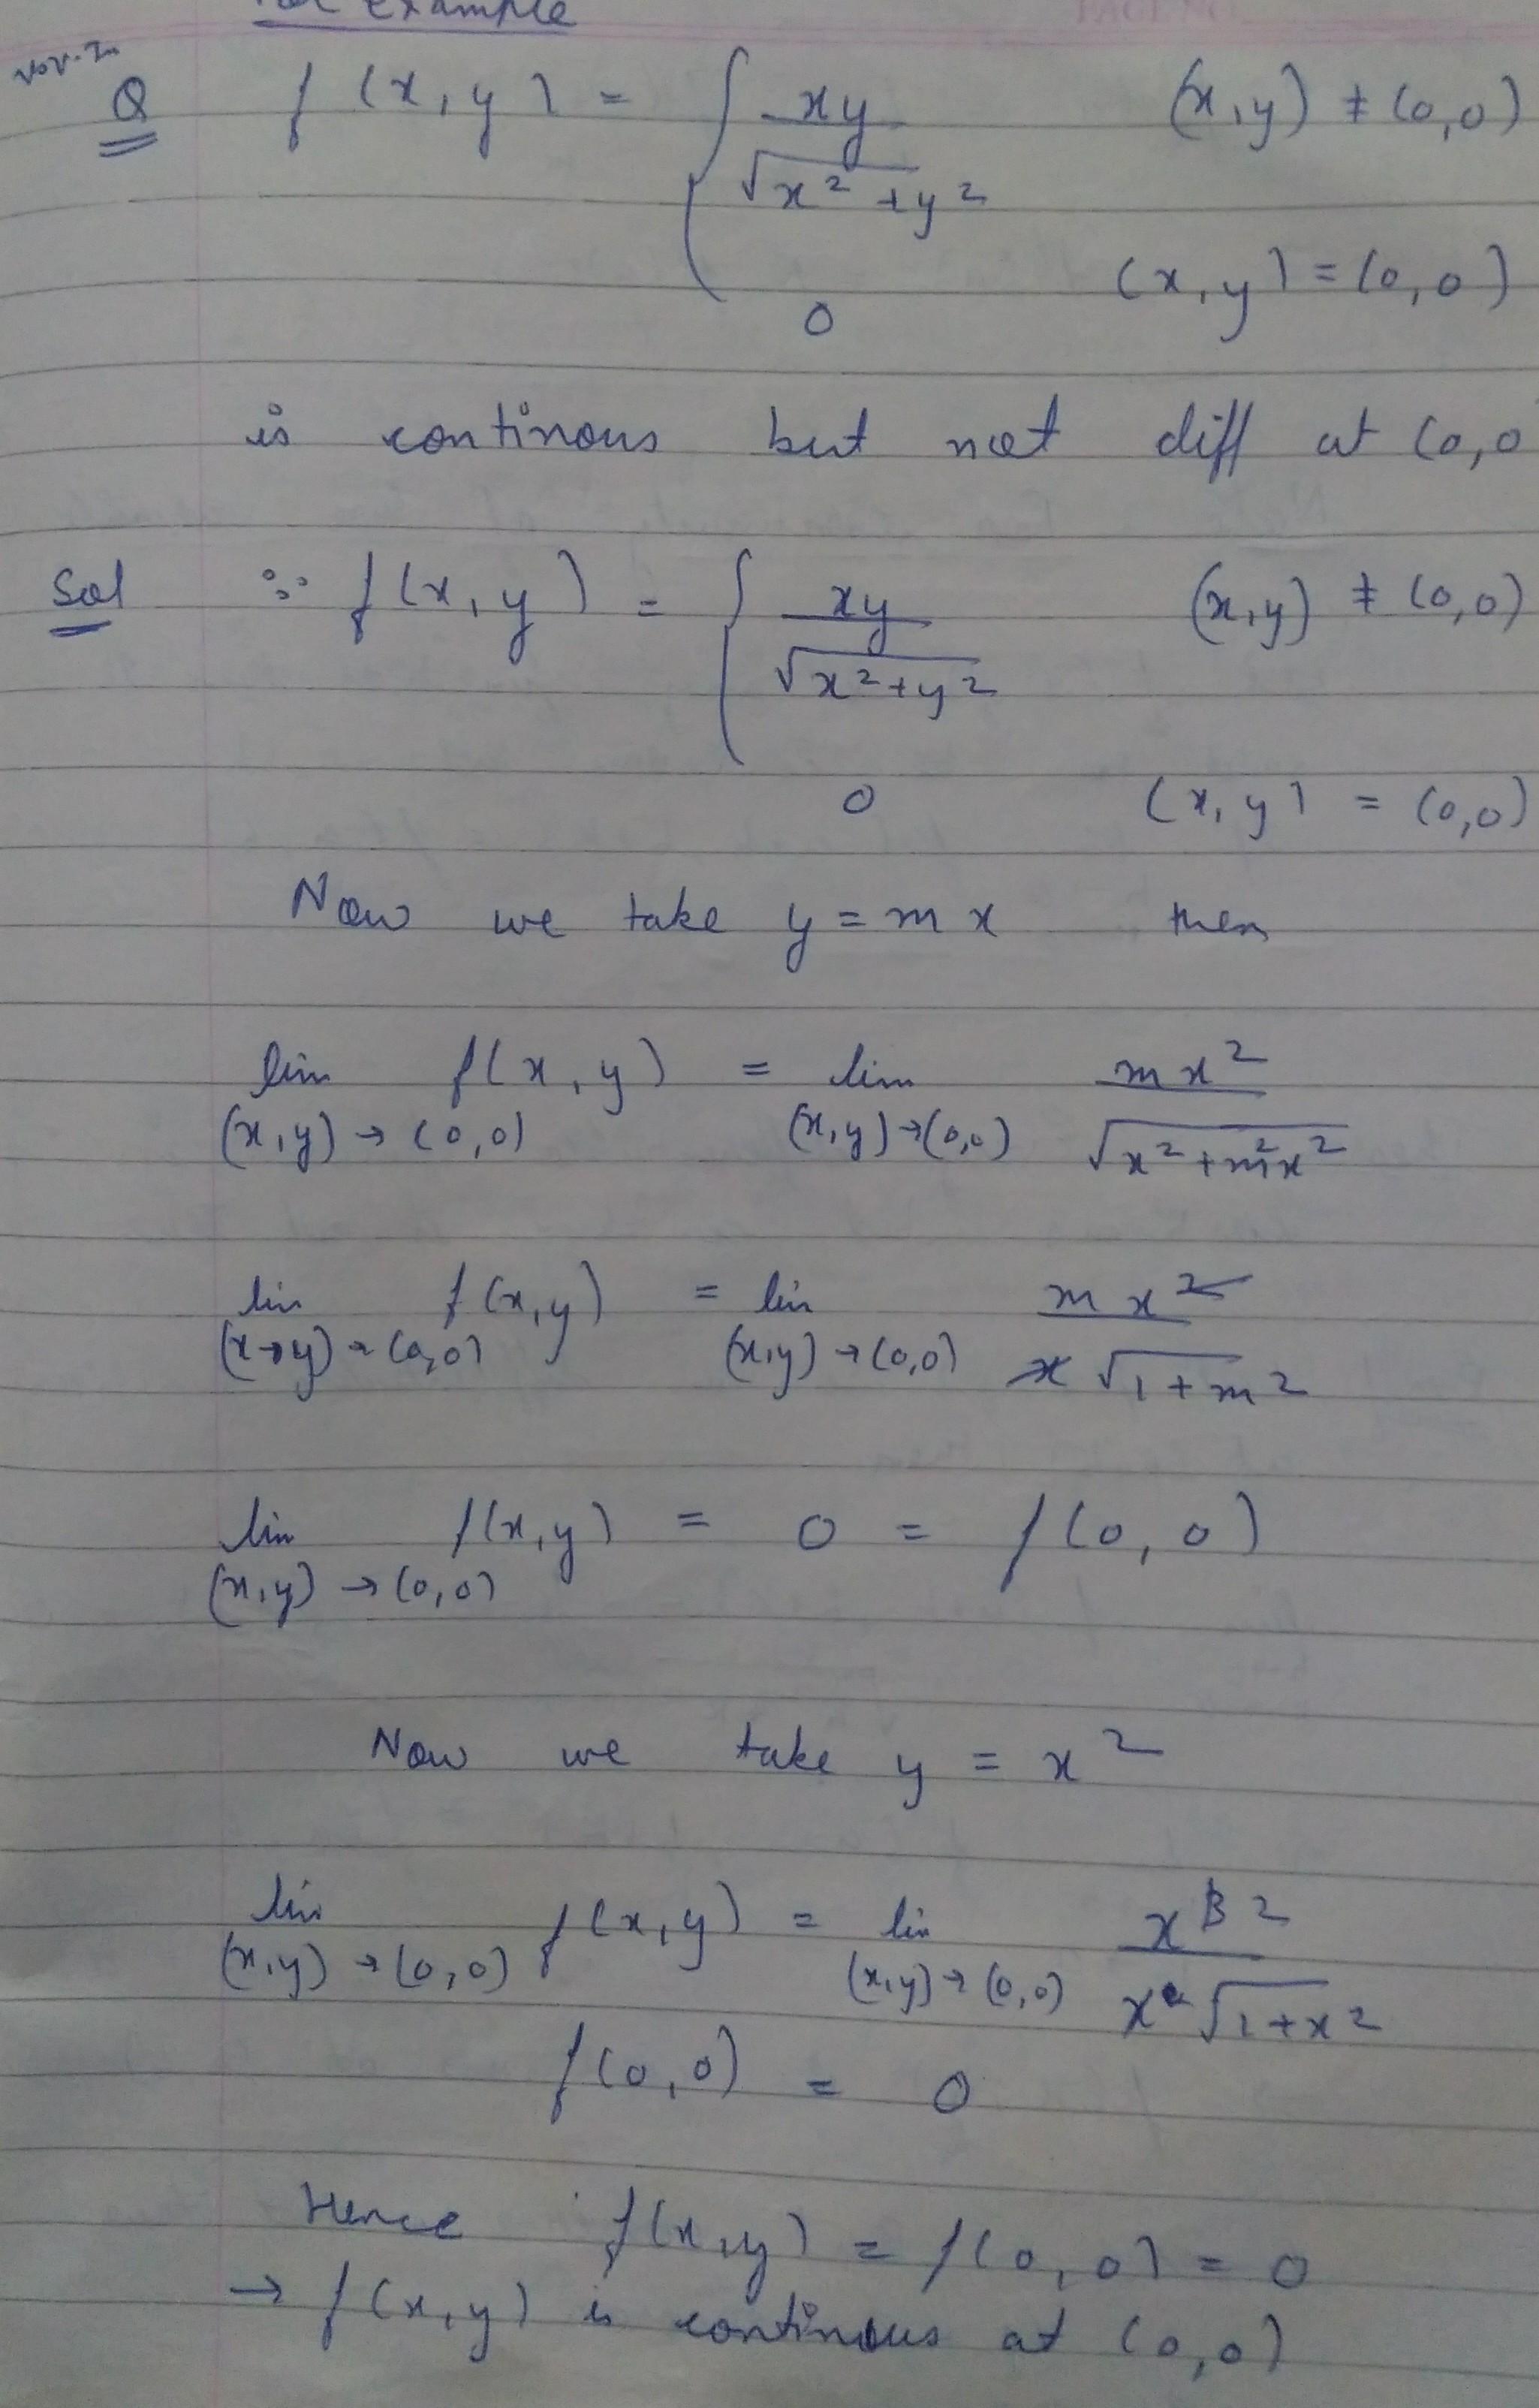 For example
Q f(x,y) = { xy / √x²+y² (x,y) ≠ (0,0)
0 (x,y) = (0,0)
is continous but not diff at (0,0
Sol ∵ f(x,y) = { xy / √x²+y² (x,y) ≠ (0,0)
0 (x,y) = (0,0)
Now we take y = mx then
lim (x,y)→(0,0) f(x,y) = lim (x,y)→(0,0) mx² / √x²+m²x²
lim (x→y)→(0,0) f(x,y) = lim (x,y)→(0,0) mx² / x√1+m²
lim (x,y)→(0,0) f(x,y) = 0 = f(0,0)
Now we take y = x²
lim (x,y)→(0,0) f(x,y) = lim (x,y)→(0,0) x³ 2 / x√1+x²
f(0,0) = 0
Hence f(x,y) = f(0,0) = 0
→ f(x,y) is continous at (0,0)